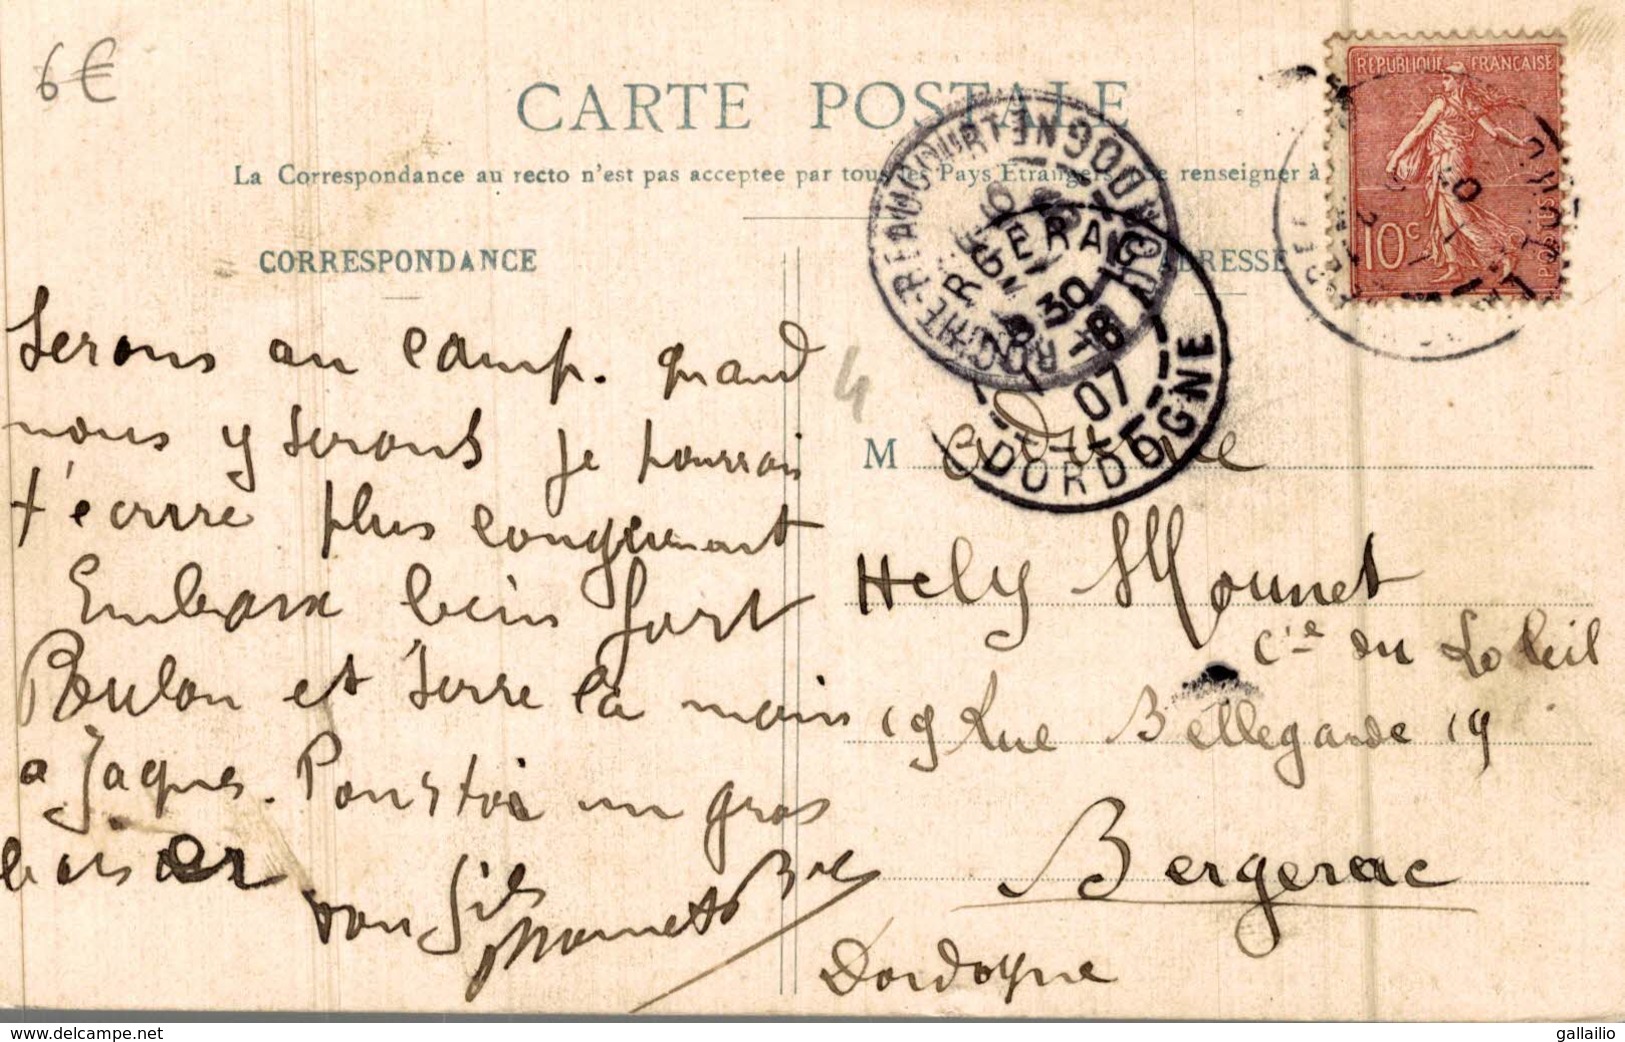 6€
CARTE POSTALE
La Correspondance au recto n'est pas acceptee par tous les Pays Etrangers renseigner à
CORRESPONDANCE
ADRESSE
REPUBLIQUE FRANÇAISE
10c
POSTES
LA ROCHE-BEAUCOURT
DORDOGNE
BERGERAC
8 30
1 - 8
07
DORDOGNE
4
serons au camp. quand
nous y serons je pourrai
t'écrire plus longuement
Embrasse bien fort
Boulon et serre la main
a Jaques. Pour toi un gros
baiser
ton fils
Mounet
M adame
Hely Mounet
Cie du Soleil
19 Rue Bellegarde 19
Bergerac
Dordogne
gallailio
www.delcampe.net